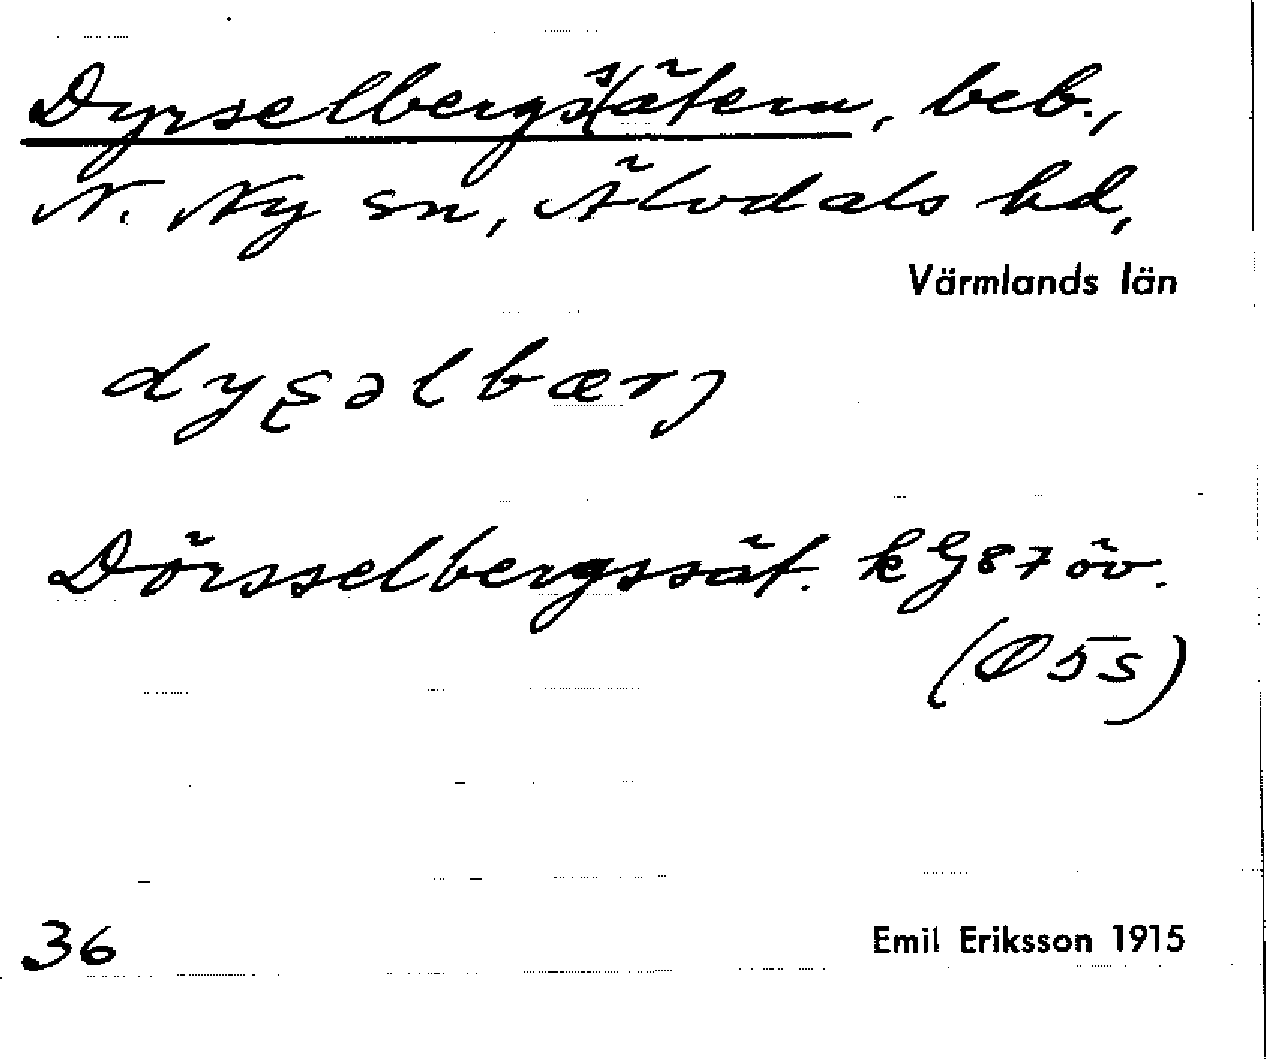 Dyrselbergssätern, beb.,
N. Ny sn, Älvdals hd,
Värmlands län
dyʂəlbærj
Dörsselbergssät. kG87öv.
(Ø5s)
36
Emil Eriksson 1915